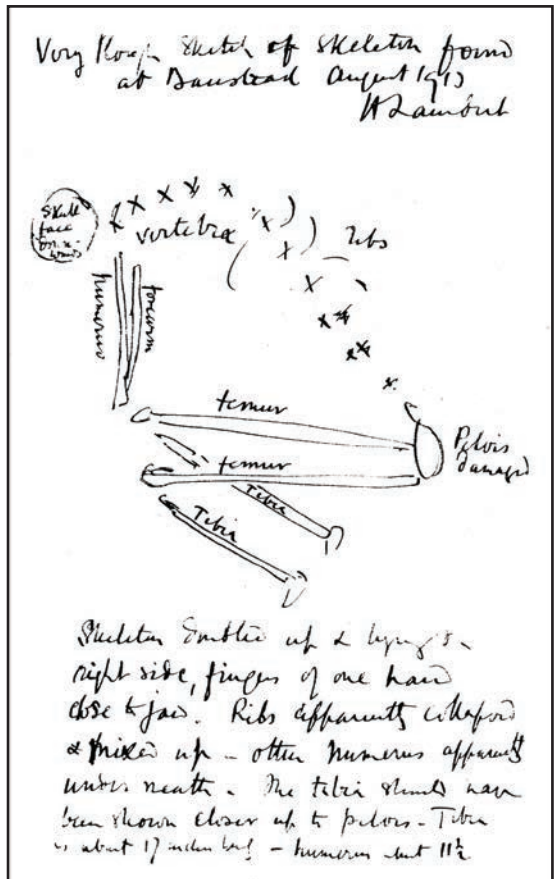 Very Rough Sketch of Skeleton found
at Banstead August 1913
H Lambert
Skull
face
downwards
vertebrae
ribs
humerus
forearm
femur
Pelvis
damaged
femur
Tibia
Tibia
Skeleton doubled up & lying on
right side, fingers of one hand
close to jaw. Ribs apparently collapsed
& mixed up – other humerus apparently
underneath. The tibia should have
been shown closer up to pelvis – Tibia
is about 17 inches long – humerus about 11½